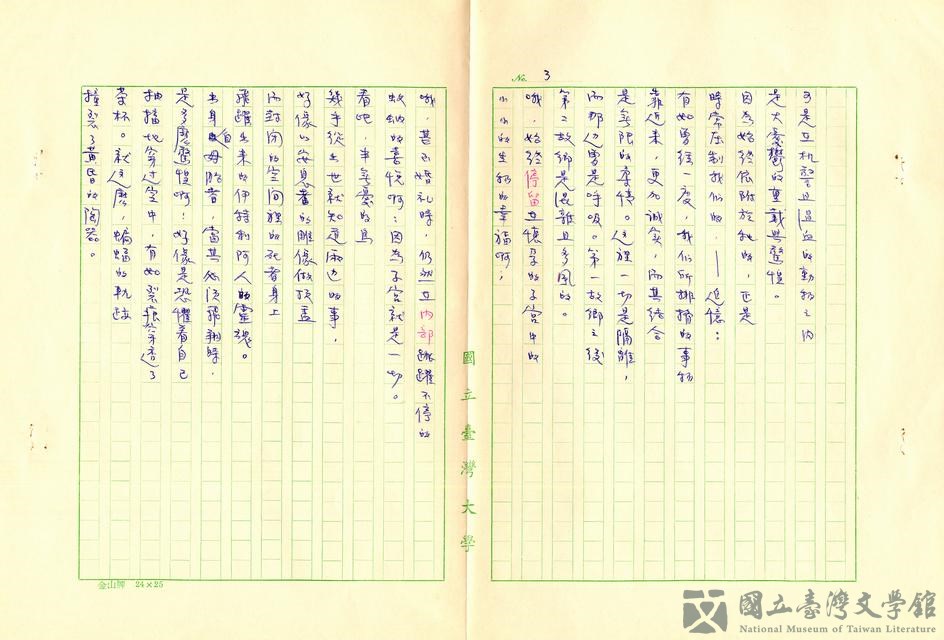 No. 3
可是在机警且溫血的動物之內
是大憂鬱的重載與驚惶。
因為始終依附於牠的，正是
時常压制我们的，——追憶：
有如曾經一度，我们所排擠的事物
靠近來，更加誠实，而其结合
是無限的柔情。这裡一切是隔離，
而那边曾是呼吸。第一故鄉之後
第二故鄉是混雜且多風的。
哦，始終停留在懷孕的子宮中的
小小的生物的幸福啊；
哦，甚至婚礼時，仍然在内部跳躍不停的
蚊蚋的喜悦啊：因為子宮就是一切。
看吧，半無憂的鳥
幾乎從出世就知道兩边的事，
好像以安息著的雕像做頂蓋
而封闭的空间裡的死者身上
飛躍出來的伊特剌阿人的靈魂。
出身自母胎者，當其必須飛翔時，
是多麼驚惶啊！好像是恐懼着自己
抽搐地穿过空中，有如裂痕穿透了
茶杯。就这麼，蝙蝠的軌跡
撞裂了黃昏的陶器。
國立臺灣大學
金山牌 24×25
國立臺灣文學館
National Museum of Taiwan Literature